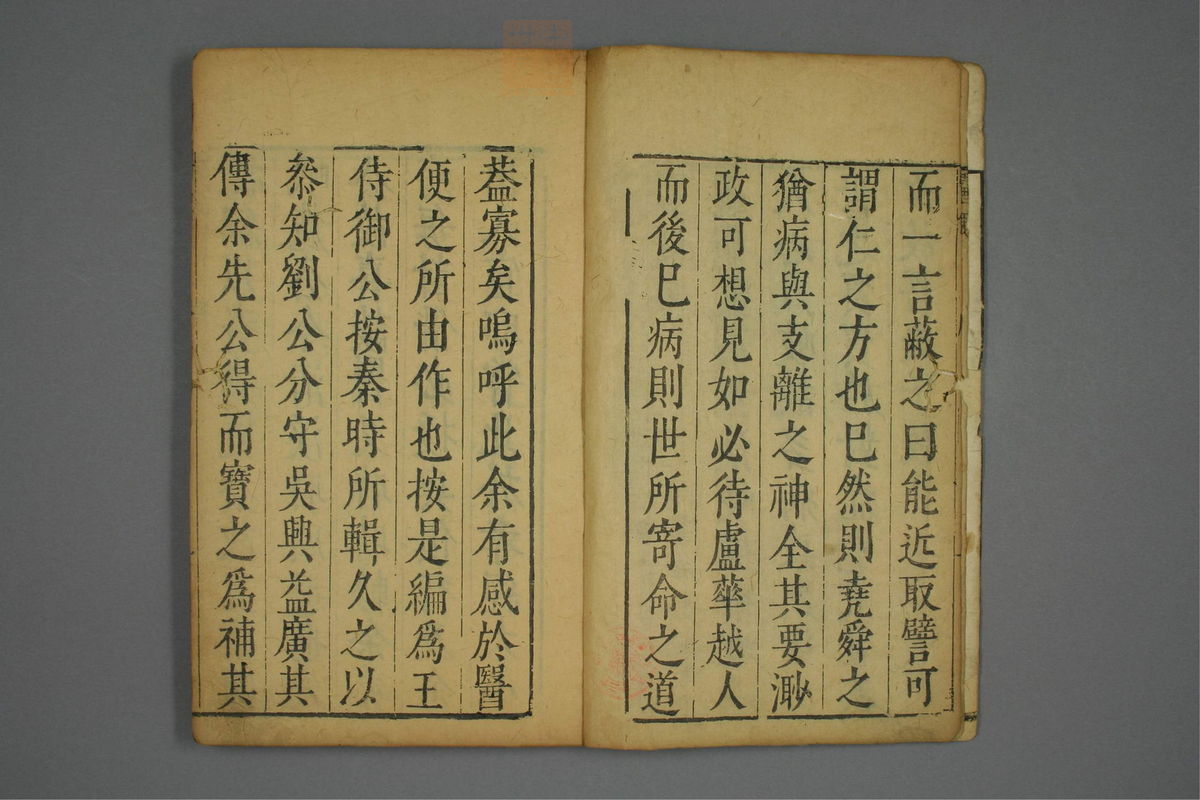 而一言蔽之曰能近取譬可
謂仁之方也巳然則堯舜之
猶病與支離之神全其要渺
政可想見如必待盧華越人
而後巳病則世所寄命之道
葢寡矣嗚呼此余有感於醫
便之所由作也按是編爲王
侍御公按秦時所輯久之以
叅知劉公分守吳興益廣其
傳余先公得而寶之爲補其